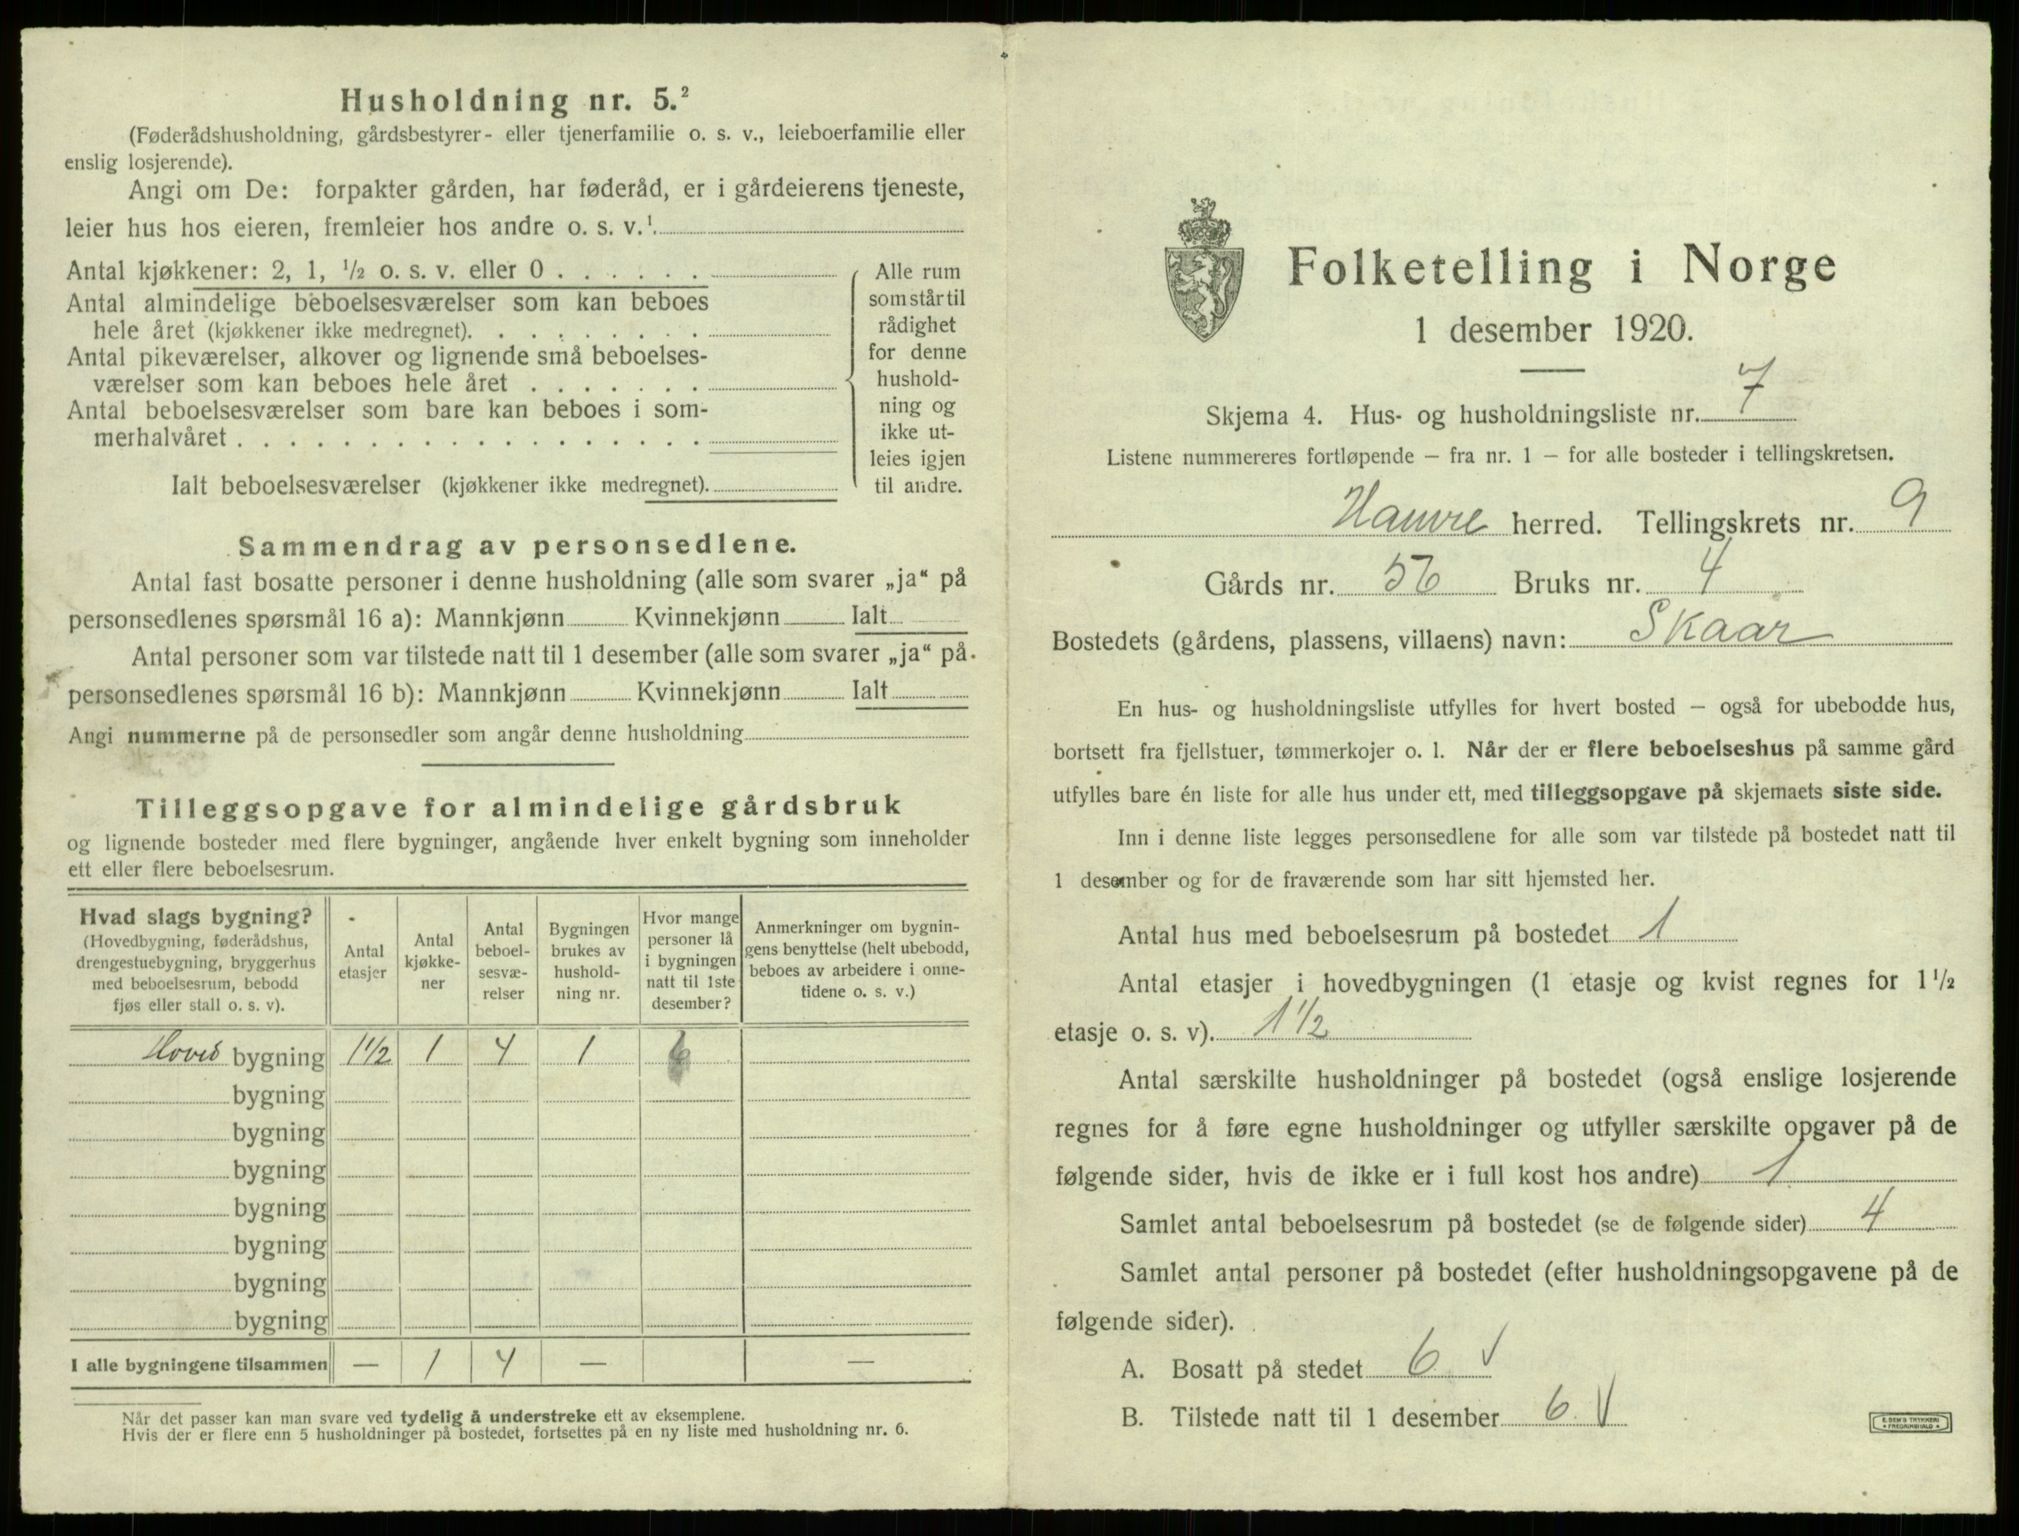 Husholdning nr. 5.²
(Føderådshusholdning, gårdsbestyrer- eller tjenerfamilie o. s. v., leieboerfamilie eller
enslig losjerende).
Angi om De: forpakter gården, har føderåd, er i gårdeierens tjeneste,
leier hus hos eieren, fremleier hos andre o. s. v.¹
Antal kjøkkener: 2, 1, ½ o. s. v. eller 0
Antal almindelige beboelsesværelser som kan beboes
hele året (kjøkkener ikke medregnet)
Antal pikeværelser, alkover og lignende små beboelses-
værelser som kan beboes hele året
Antal beboelsesværelser som bare kan beboes i som-
merhalvåret
Ialt beboelsesværelser (kjøkkener ikke medregnet)
Alle rum
som står til
rådighet
for denne
hushold-
ning og
ikke ut-
leies igjen
til andre.
Sammendrag av personsedlene.
Antal fast bosatte personer i denne husholdning (alle som svarer „ja“ på
personsedlenes spørsmål 16 a): Mannkjønn Kvinnekjønn Ialt
Antal personer som var tilstede natt til 1 desember (alle som svarer „ja“ på
personsedlenes spørsmål 16 b): Mannkjønn Kvinnekjønn Ialt
Angi nummerne på de personsedler som angår denne husholdning
Tilleggsopgave for almindelige gårdsbruk
og lignende bosteder med flere bygninger, angående hver enkelt bygning som inneholder
ett eller flere beboelsesrum.
Hvad slags bygning?
(Hovedbygning, føderådshus,
drengestuebygning, bryggerhus
med beboelsesrum, bebodd
fjøs eller stall o. s. v).
Antal
etasjer
Antal
kjøkke-
ner
Antal
beboel-
sesvæ-
relser
Bygningen
brukes av
hushold-
ning nr.
Hvor mange
personer lå
i bygningen
natt til 1ste
desember?
Anmerkninger om bygnin-
gens benyttelse (helt ubebodd,
beboes av arbeidere i onne-
tidene o. s. v.)
Hoved bygning 1½ 1 4 1 6
bygning
bygning
bygning
bygning
bygning
bygning
bygning
I alle bygningene tilsammen — 1 4 — —
Når det passer kan man svare ved tydelig å understreke ett av eksemplene.
Hvis der er flere enn 5 husholdninger på bostedet, fortsettes på en ny liste med husholdning nr. 6.
Folketelling i Norge
1 desember 1920.
Skjema 4. Hus- og husholdningsliste nr. 7
Listene nummereres fortløpende – fra nr. 1 – for alle bosteder i tellingskretsen.
Hamre herred. Tellingskrets nr. 9
Gårds nr. 56 Bruks nr. 4
Bostedets (gårdens, plassens, villaens) navn: Skaar
En hus- og husholdningsliste utfylles for hvert bosted – også for ubebodde hus,
bortsett fra fjellstuer, tømmerkojer o. l. Når der er flere beboelseshus på samme gård
utfylles bare én liste for alle hus under ett, med tilleggsopgave på skjemaets siste side.
Inn i denne liste legges personsedlene for alle som var tilstede på bostedet natt til
1 desember og for de fraværende som har sitt hjemsted her.
Antal hus med beboelsesrum på bostedet 1
Antal etasjer i hovedbygningen (1 etasje og kvist regnes for 1½
etasje o. s. v). 1½
Antal særskilte husholdninger på bostedet (også enslige losjerende
regnes for å føre egne husholdninger og utfyller særskilte opgaver på de
følgende sider, hvis de ikke er i full kost hos andre) 1
Samlet antal beboelsesrum på bostedet (se de følgende sider) 4
Samlet antal personer på bostedet (efter husholdningsopgavene på de
følgende sider).
A. Bosatt på stedet 6 √
B. Tilstede natt til 1 desember 6 √
E. SEM'S TRYKKERI
FREDRIKSHALD